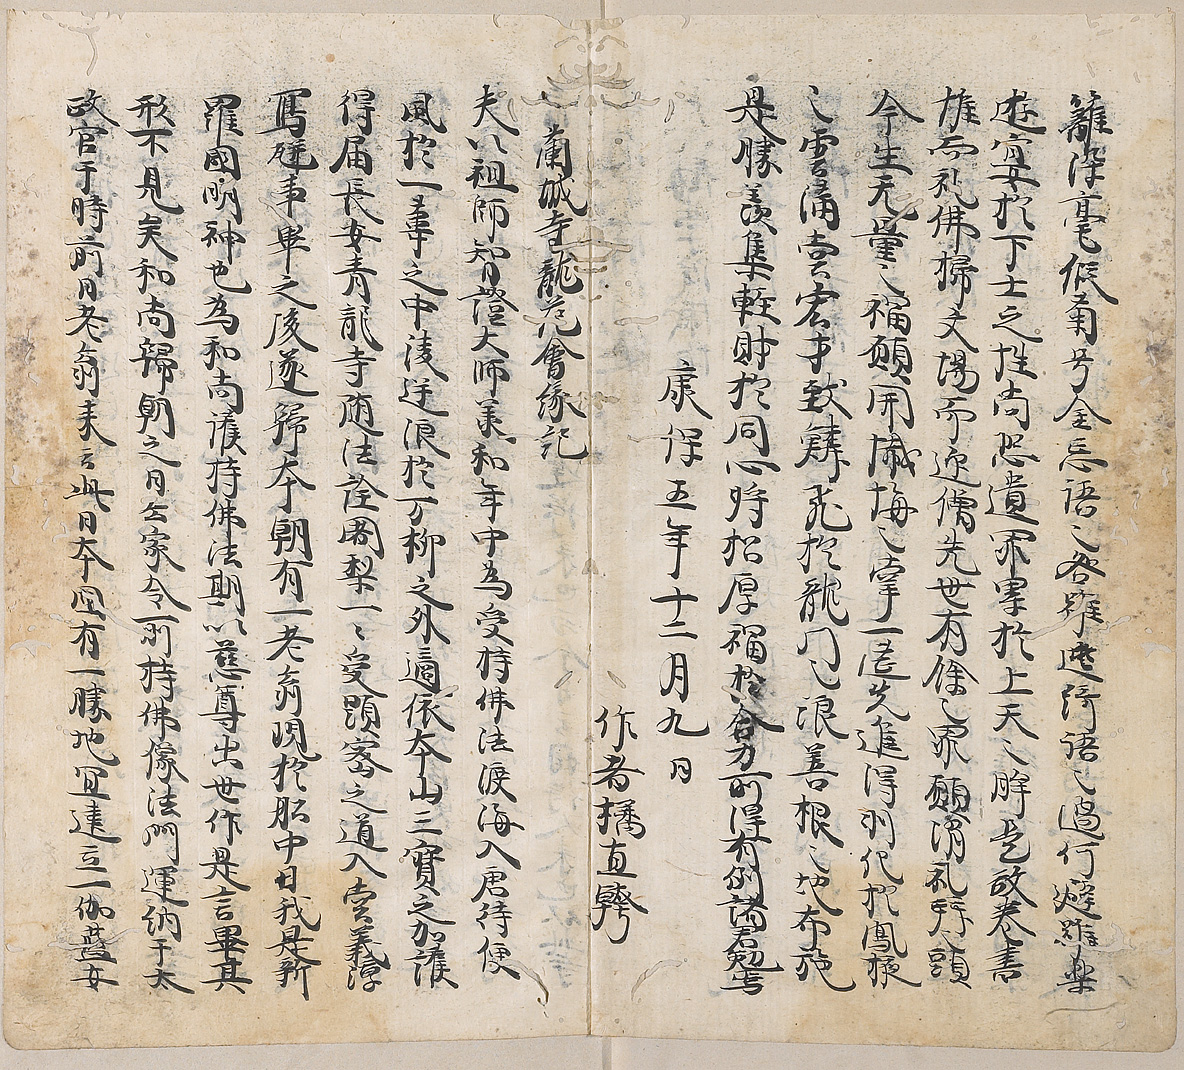 籬染毫假蕳号全忘語之咎難遮綺語之過何避雖垂
遊宜於下士之性尚恐遺罪累於上天之眸是故巻書
雄而礼佛掃文場而迎僧先世有餘之罪願消礼拝之頭
今生无量之福願開懺悔之掌一匿先進得利他於鳳扆
之雲涌言宏才致鱗飛於龍門之浪善根之地布施
是勝羨集軽財於同心将招厚福於合力前得有例諸君勉哉
康保五年十二月九日
作者橘直幹
蘭城寺龍花會縁記
夫以祖師智證大師美和年中為受持佛法渡海入唐待便
風於一葦之中凌逆浪於万柳之外適依本山三寳之加護
得届長安青龍寺随法詮闍梨一々受顕密之道入唐義淳
寫瓶事畢之後遂歸本朝有一老翁現於舩中曰我是新
羅國明神也為和尚護持佛法期以慈尊出世作是言畢其
形不見矣和尚歸朝之日公家令一所持佛像法門運納于太
政官于時前日老翁来云此日本国有一勝地宜建立一伽藍安